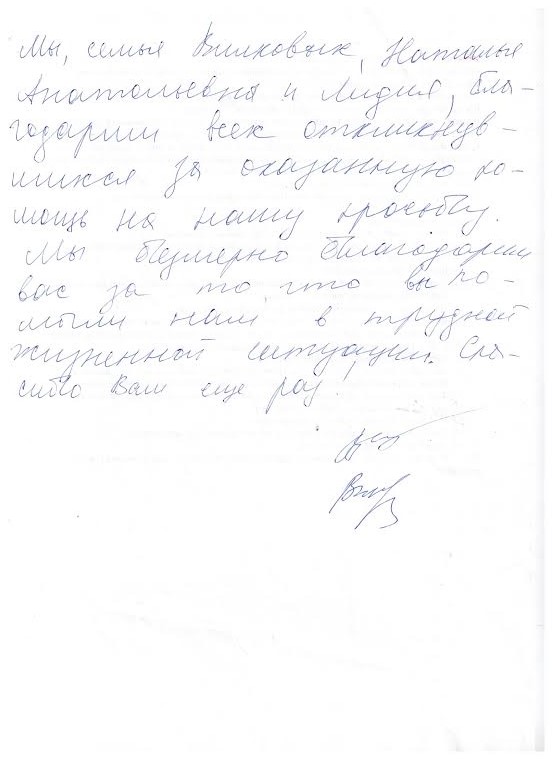 Мы, семья Вилковыск, Наталья
Анатольевна и Лидия, бла-
годарим всех откликнув-
шихся за оказанную по-
мощь на нашу просьбу.
Мы безмерно благодарим
вас за то, что вы по-
могли нам в трудной
жизненной ситуации. Спа-
сибо Вам еще раз!